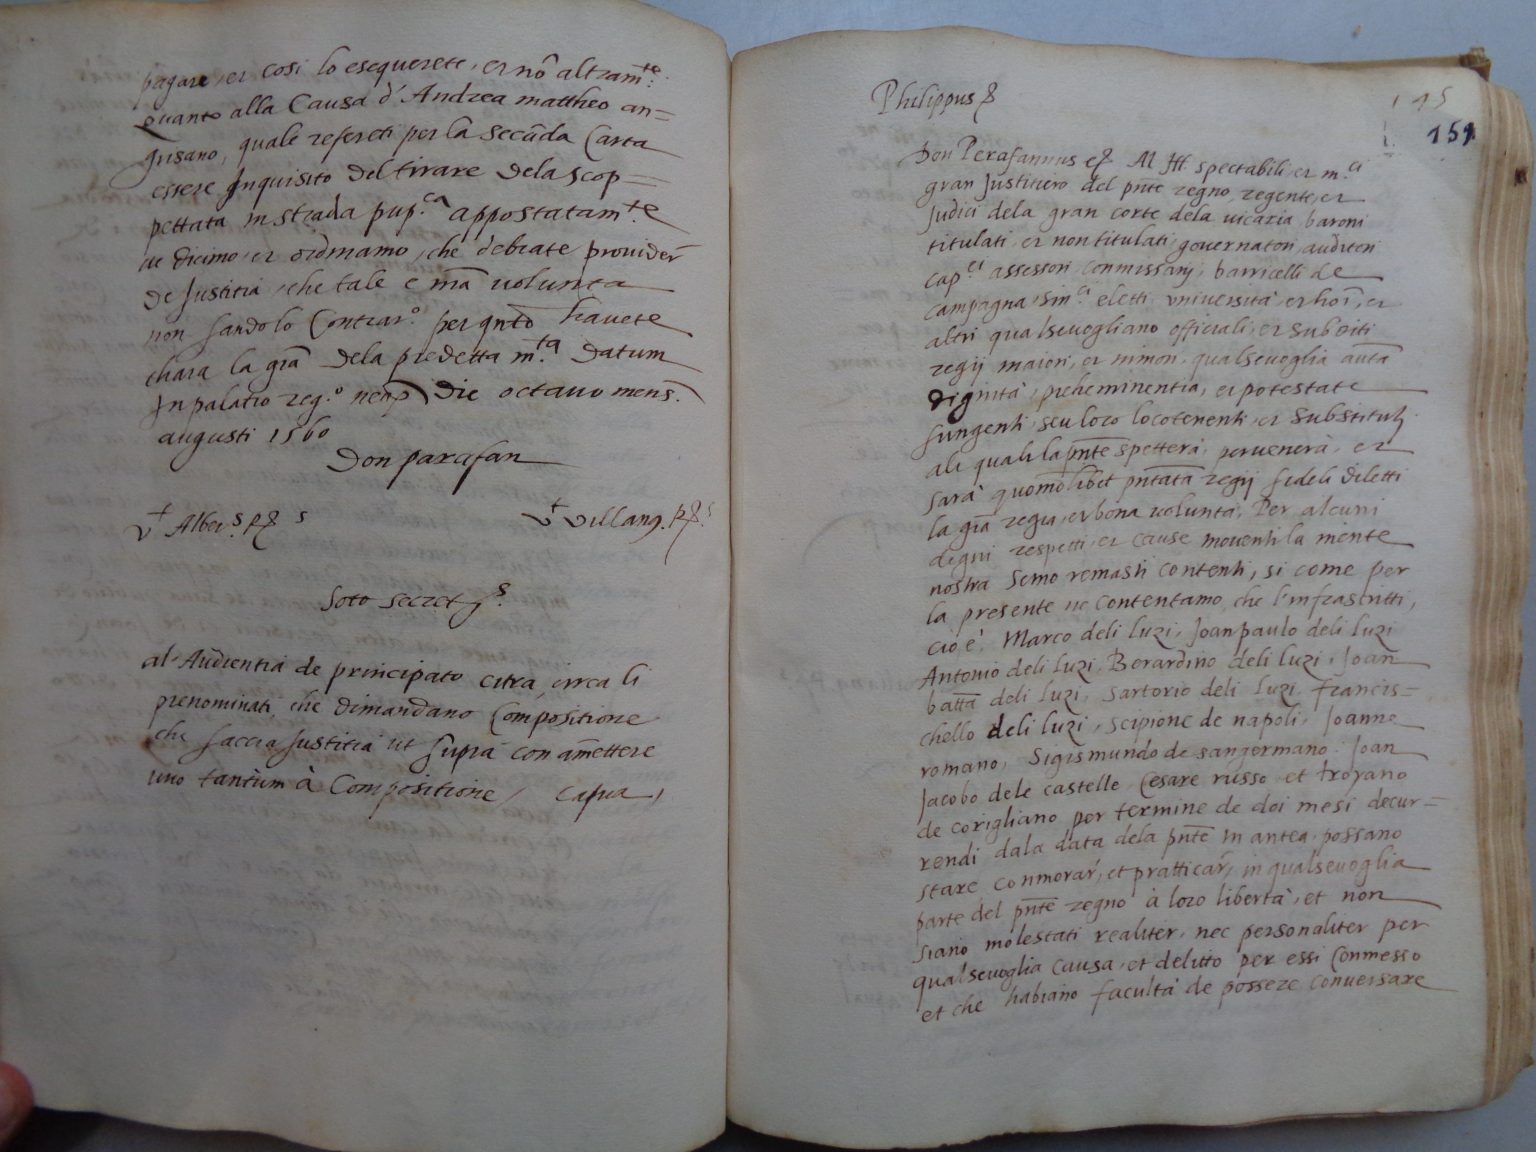 pagare, et cosi lo esequerete, et nō altram.te
quanto alla Causa d'Andrea mattheo an=
grisano, quale refereti per la secūda Carta
essere Inquisito del tirare dela scop=
pettata in strada pup.ca appostatam.te
ve dicimo, et ordinamo, che debiate provider̄
de Justitia, che tale e mā volunta
non fandolo Contrar.o per qnto havete
chara la grā dela predetta m.ta Datum
In palatio reg.o neap Die octavo mens.
augusti 1560
Don parafan
v.t Alber.s R s
v.t villang. R.s
Soto secret s.
al Audientia de principato citra, circa li
prenominati, che dimandano Compositione
che faccia Justitia ut supra con amettere
uno tantum à Compositione, Capua,
Philippus
145
151
Don Perafannus Al Ill spectabili, et m.ci
gran Justitiero del pnte regno, regente, et
Judici dela gran corte dela vicaria, baroni
titulati, et non titulati, governatori, auditori
cap.ei assessori, conmissarij, barricelli de
campagna, sin.ci eletti, università, et hoī, et
altri qualsevogliano officiali, et subditi
regij maiori, et minori, qualsevoglia autā
dignità, preheminentia, et potestate
fungenti, seu loro locotenenti, et substituti
ali quali la pnte spetterà, pervenerà, et
sarà quomolibet pntata regij fideli diletti
la grā regia, et bona volunta, Per alcuni
degni respetti, et cause moventi la mente
nostra semo remasti contenti, si come per
la presente ne contentamo, che l'infrascritti,
cioè, Marco deli luzi, Joanpaulo deli luzi
Antonio deli luzi, Berardino deli luzi, Joan
batta deli luzi, Sartorio deli luzi, francis=
chello deli luzi, Scipione de napoli, Joanne
romano, Sigismundo de sangermano, Joan
Jacobo dele castelle, Cesare russo, et troyano
de corigliano per termine de doi mesi decur=
rendi dala data dela pnte in antea, possano
stare conmorar̄, et pratticar̄, in qualsevoglia
parte del pnte regno à loro libertà, et non
siano molestati realiter, nec personaliter per
qualsevoglia causa, et delitto per essi Conmesso
et che habiano facultà de possere conversare